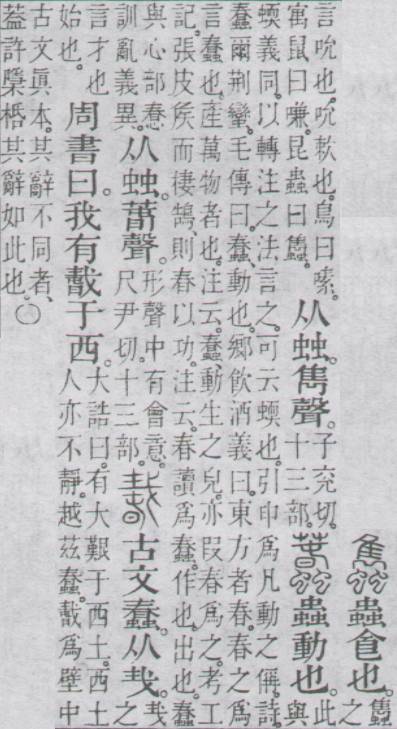 蟲食也。之
言吮也。吮欶也。鳥曰嗉。
寓鼠曰嗛。昆蟲曰
从䖵。雋聲。
子兖切。
十三部。
蟲動也。此與
蝡義同。以轉注之法言之。可云蝡也。引申爲凡動之偁。詩。
蠢爾荆蠻。毛傳曰。蠢、動也。鄉飮酒義曰。東方者春。春之爲
言蠢也。產萬物者也。注云。蠢、動生之皃。亦叚春爲之。考工
記。張皮矦而棲鵠、則春以功。注云。春讀爲蠢。作也。出也。蠢
與心部惷
訓亂義異。
从䖵。萅聲。
形聲中有會意。
尺尹切。十三部。
古文蠢。从𢦏。𢦏之
言才也。
始也。
周書曰。我有𢧵于西。
大誥曰。有大艱于西土。西土
人亦不靜。越茲蠢。𢧵爲壁中
古文眞本。其辭不同者、
葢許檃桰其辭如此也。○